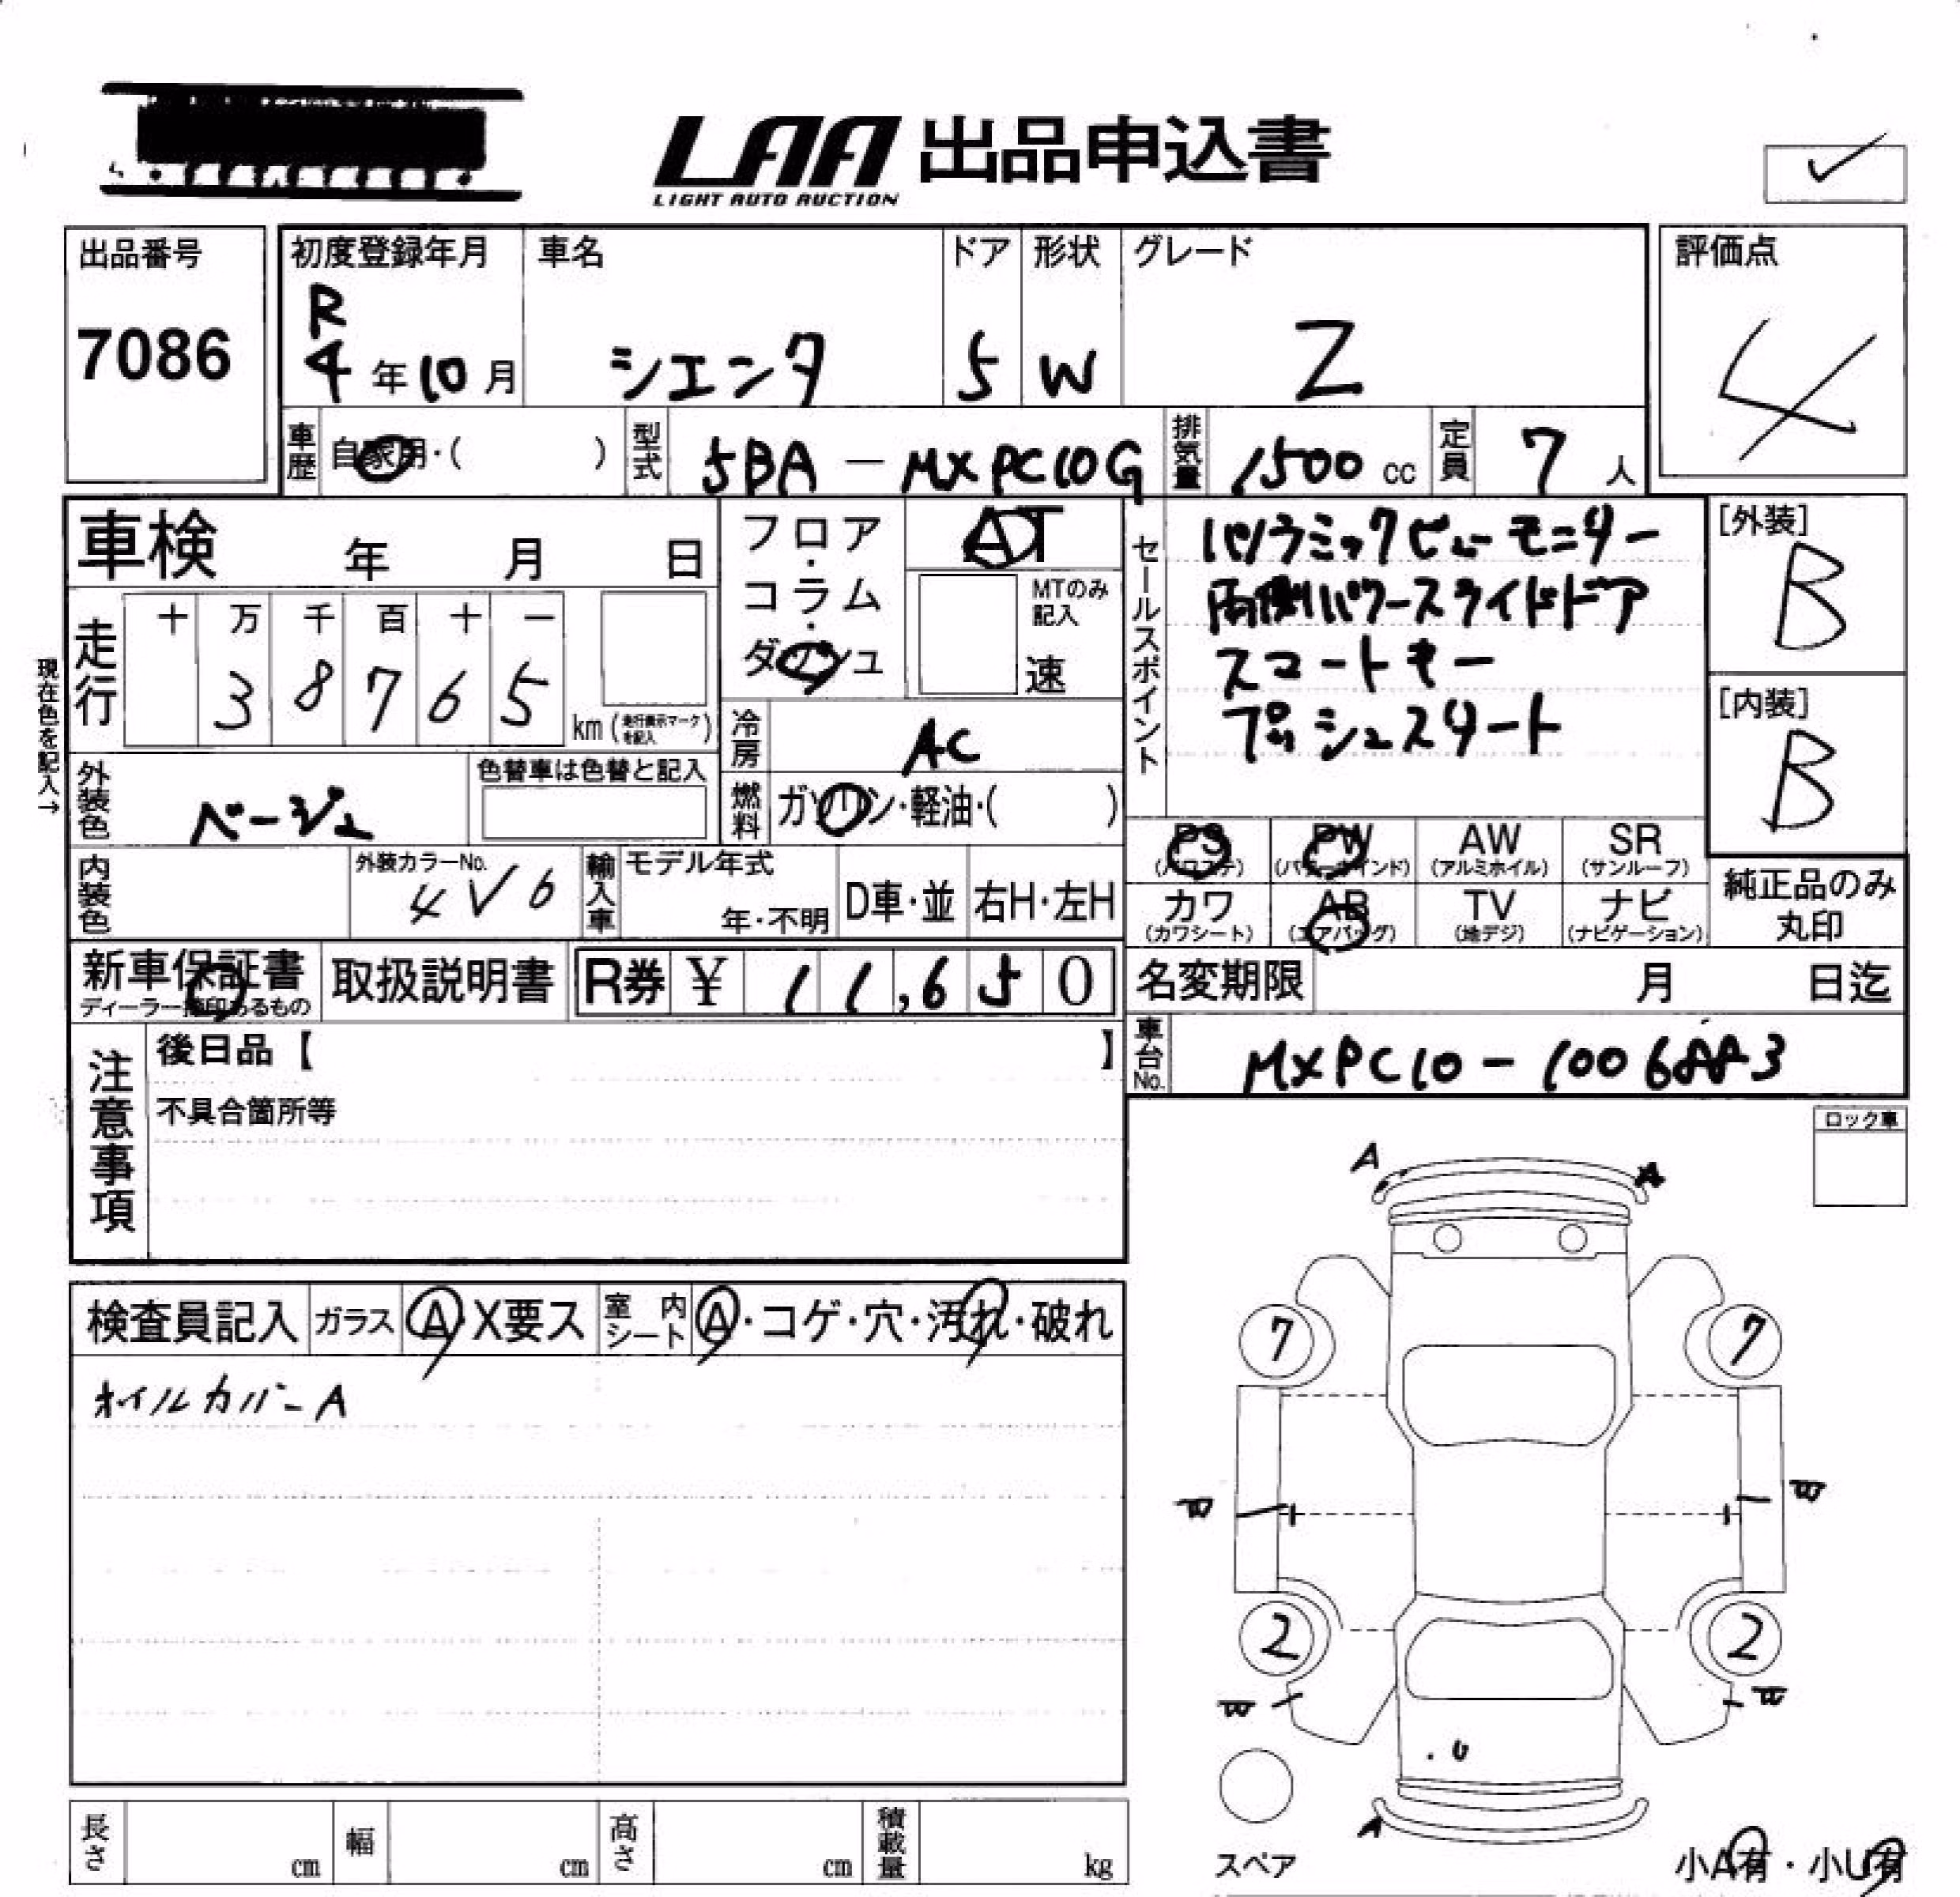 LAA 出品申込書
LIGHT AUTO AUCTION
✓
出品番号
7086
初度登録年月
R
4年10月
車名
シエンタ
ドア
5
形状
W
グレード
Z
評価点
4
車歴
自家用・( )
型式
5BA-MXPC10G
排気量
1500 cc
定員
7人
車検 年 月 日
走行
十 万 千 百 十 一
3 8 7 6 5
km (走行表示マークを記入)
現在色を記入→
外装色
ベージュ
色替車は色替と記入
内装色
外装カラーNo.
4V6
フロア・コラム・ダッシュ
AT
MTのみ記入
速
冷房
AC
燃料
ガソリン・軽油・( )
輸入車
モデル年式
年・不明
D車・並
右H・左H
セールスポイント
パノラミックビューモニター
両側パワースライドドア
スマートキー
プッシュスタート
[外装]
B
[内装]
B
PS
(パワステ)
PW
(パワーウインド)
AW
(アルミホイル)
SR
(サンルーフ)
カワ
(カワシート)
AB
(エアバッグ)
TV
(地デジ)
ナビ
(ナビゲーション)
純正品のみ
丸印
新車保証書
ディーラー捺印あるもの
取扱説明書
R券 ¥ 11,650
名変期限 月 日迄
車台No.
MXPC10-1006883
注意事項
後日品【 】
不具合箇所等
ロック車
検査員記入
ガラス
A X要ス
室内シート
A・コゲ・穴・汚れ・破れ
ホイルカバーA
A A
7 7
W W
2 2
W W
.U
A
スペア
小A有・小U有
長さ cm
幅 cm
高さ cm
積載量 kg